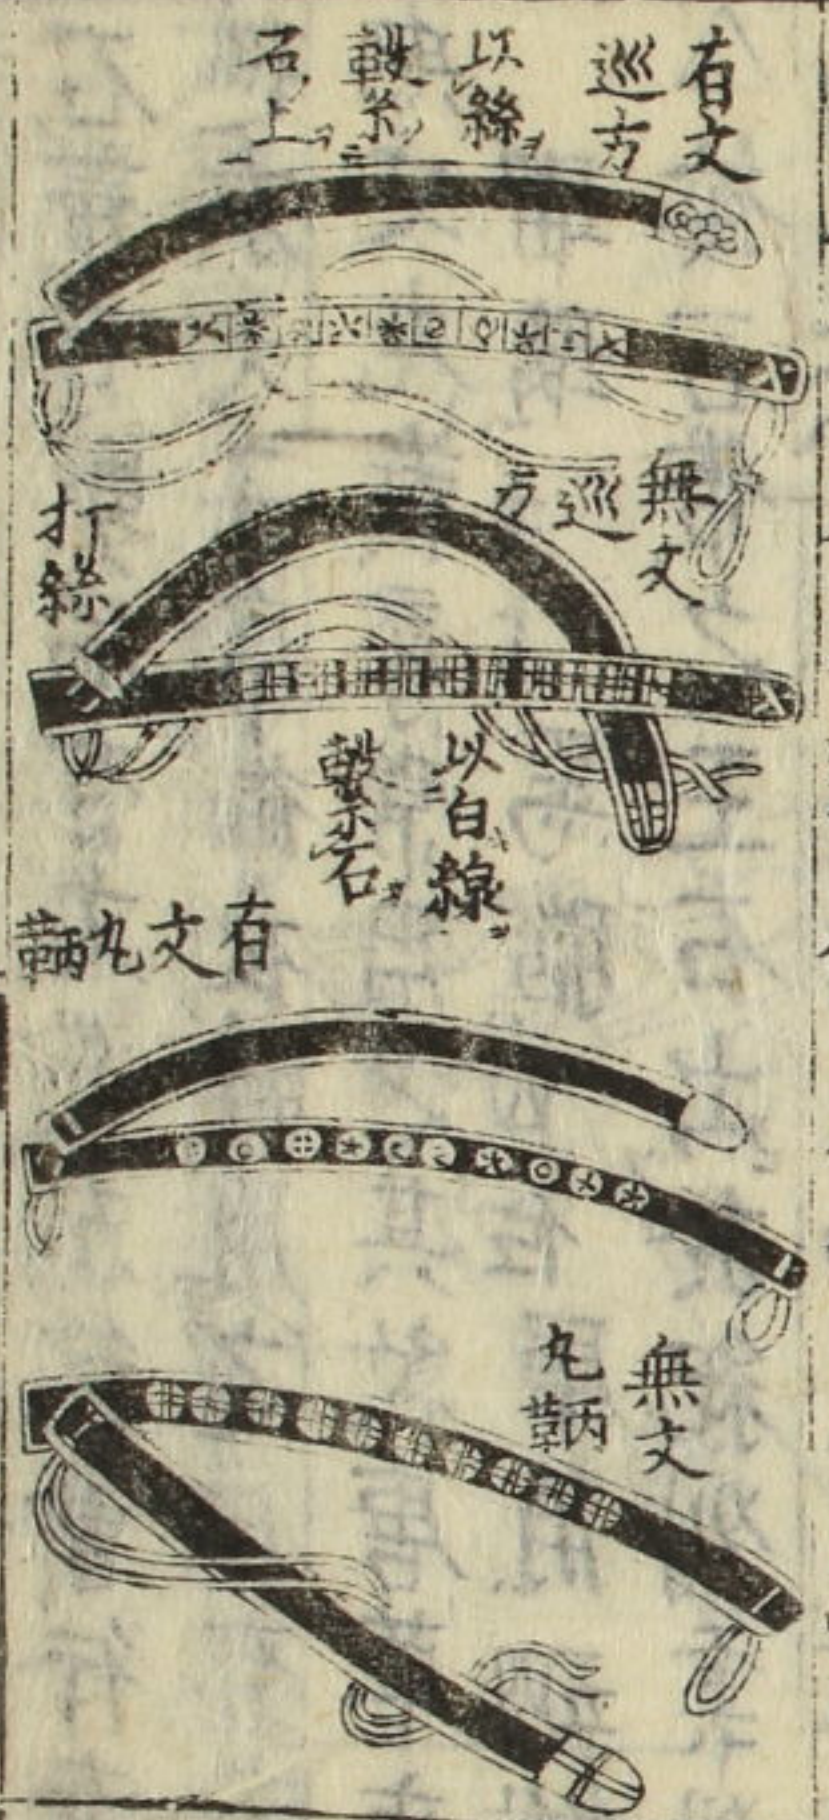 有文
巡方
以絲ヲ
繋ク
石ノ上ニ
無文
巡
方
打
絲
以
白
線ヲ
繋石ヲ
有文丸鞆
無文
丸鞆